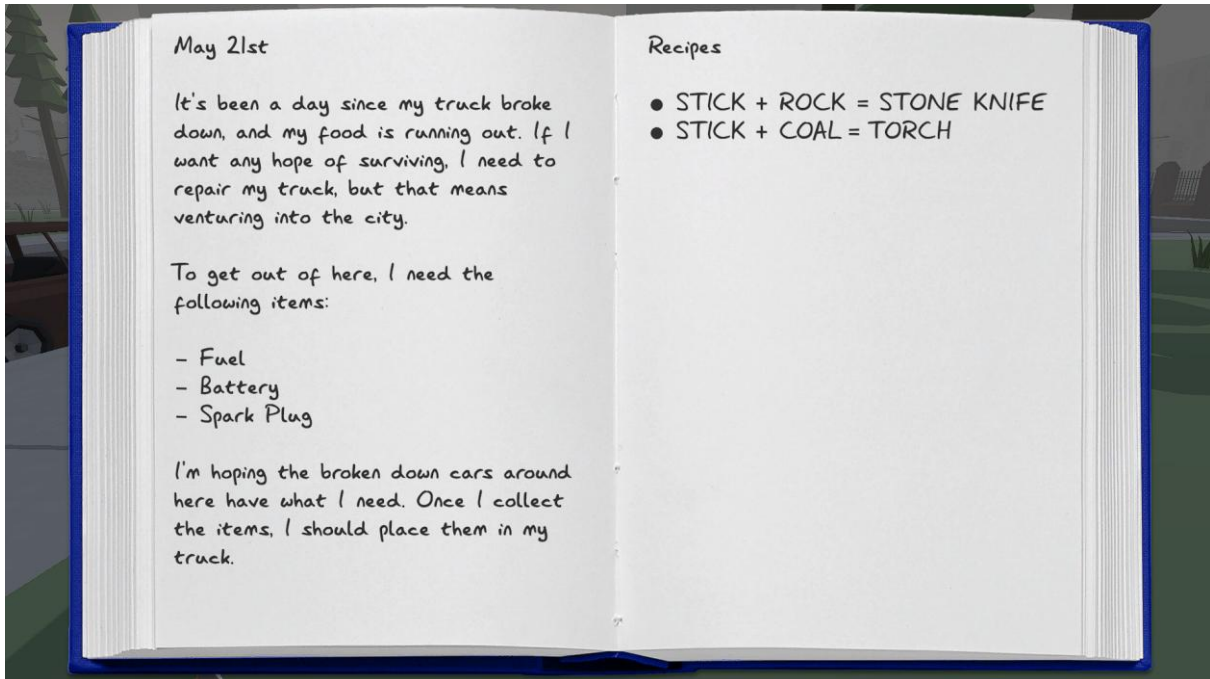 May 21st
It's been a day since my truck broke
down, and my food is running out. If I
want any hope of surviving, I need to
repair my truck, but that means
venturing into the city.
To get out of here, I need the
following items:
- Fuel
- Battery
- Spark Plug
I'm hoping the broken down cars around
here have what I need. Once I collect
the items, I should place them in my
truck.
Recipes
• STICK + ROCK = STONE KNIFE
• STICK + COAL = TORCH